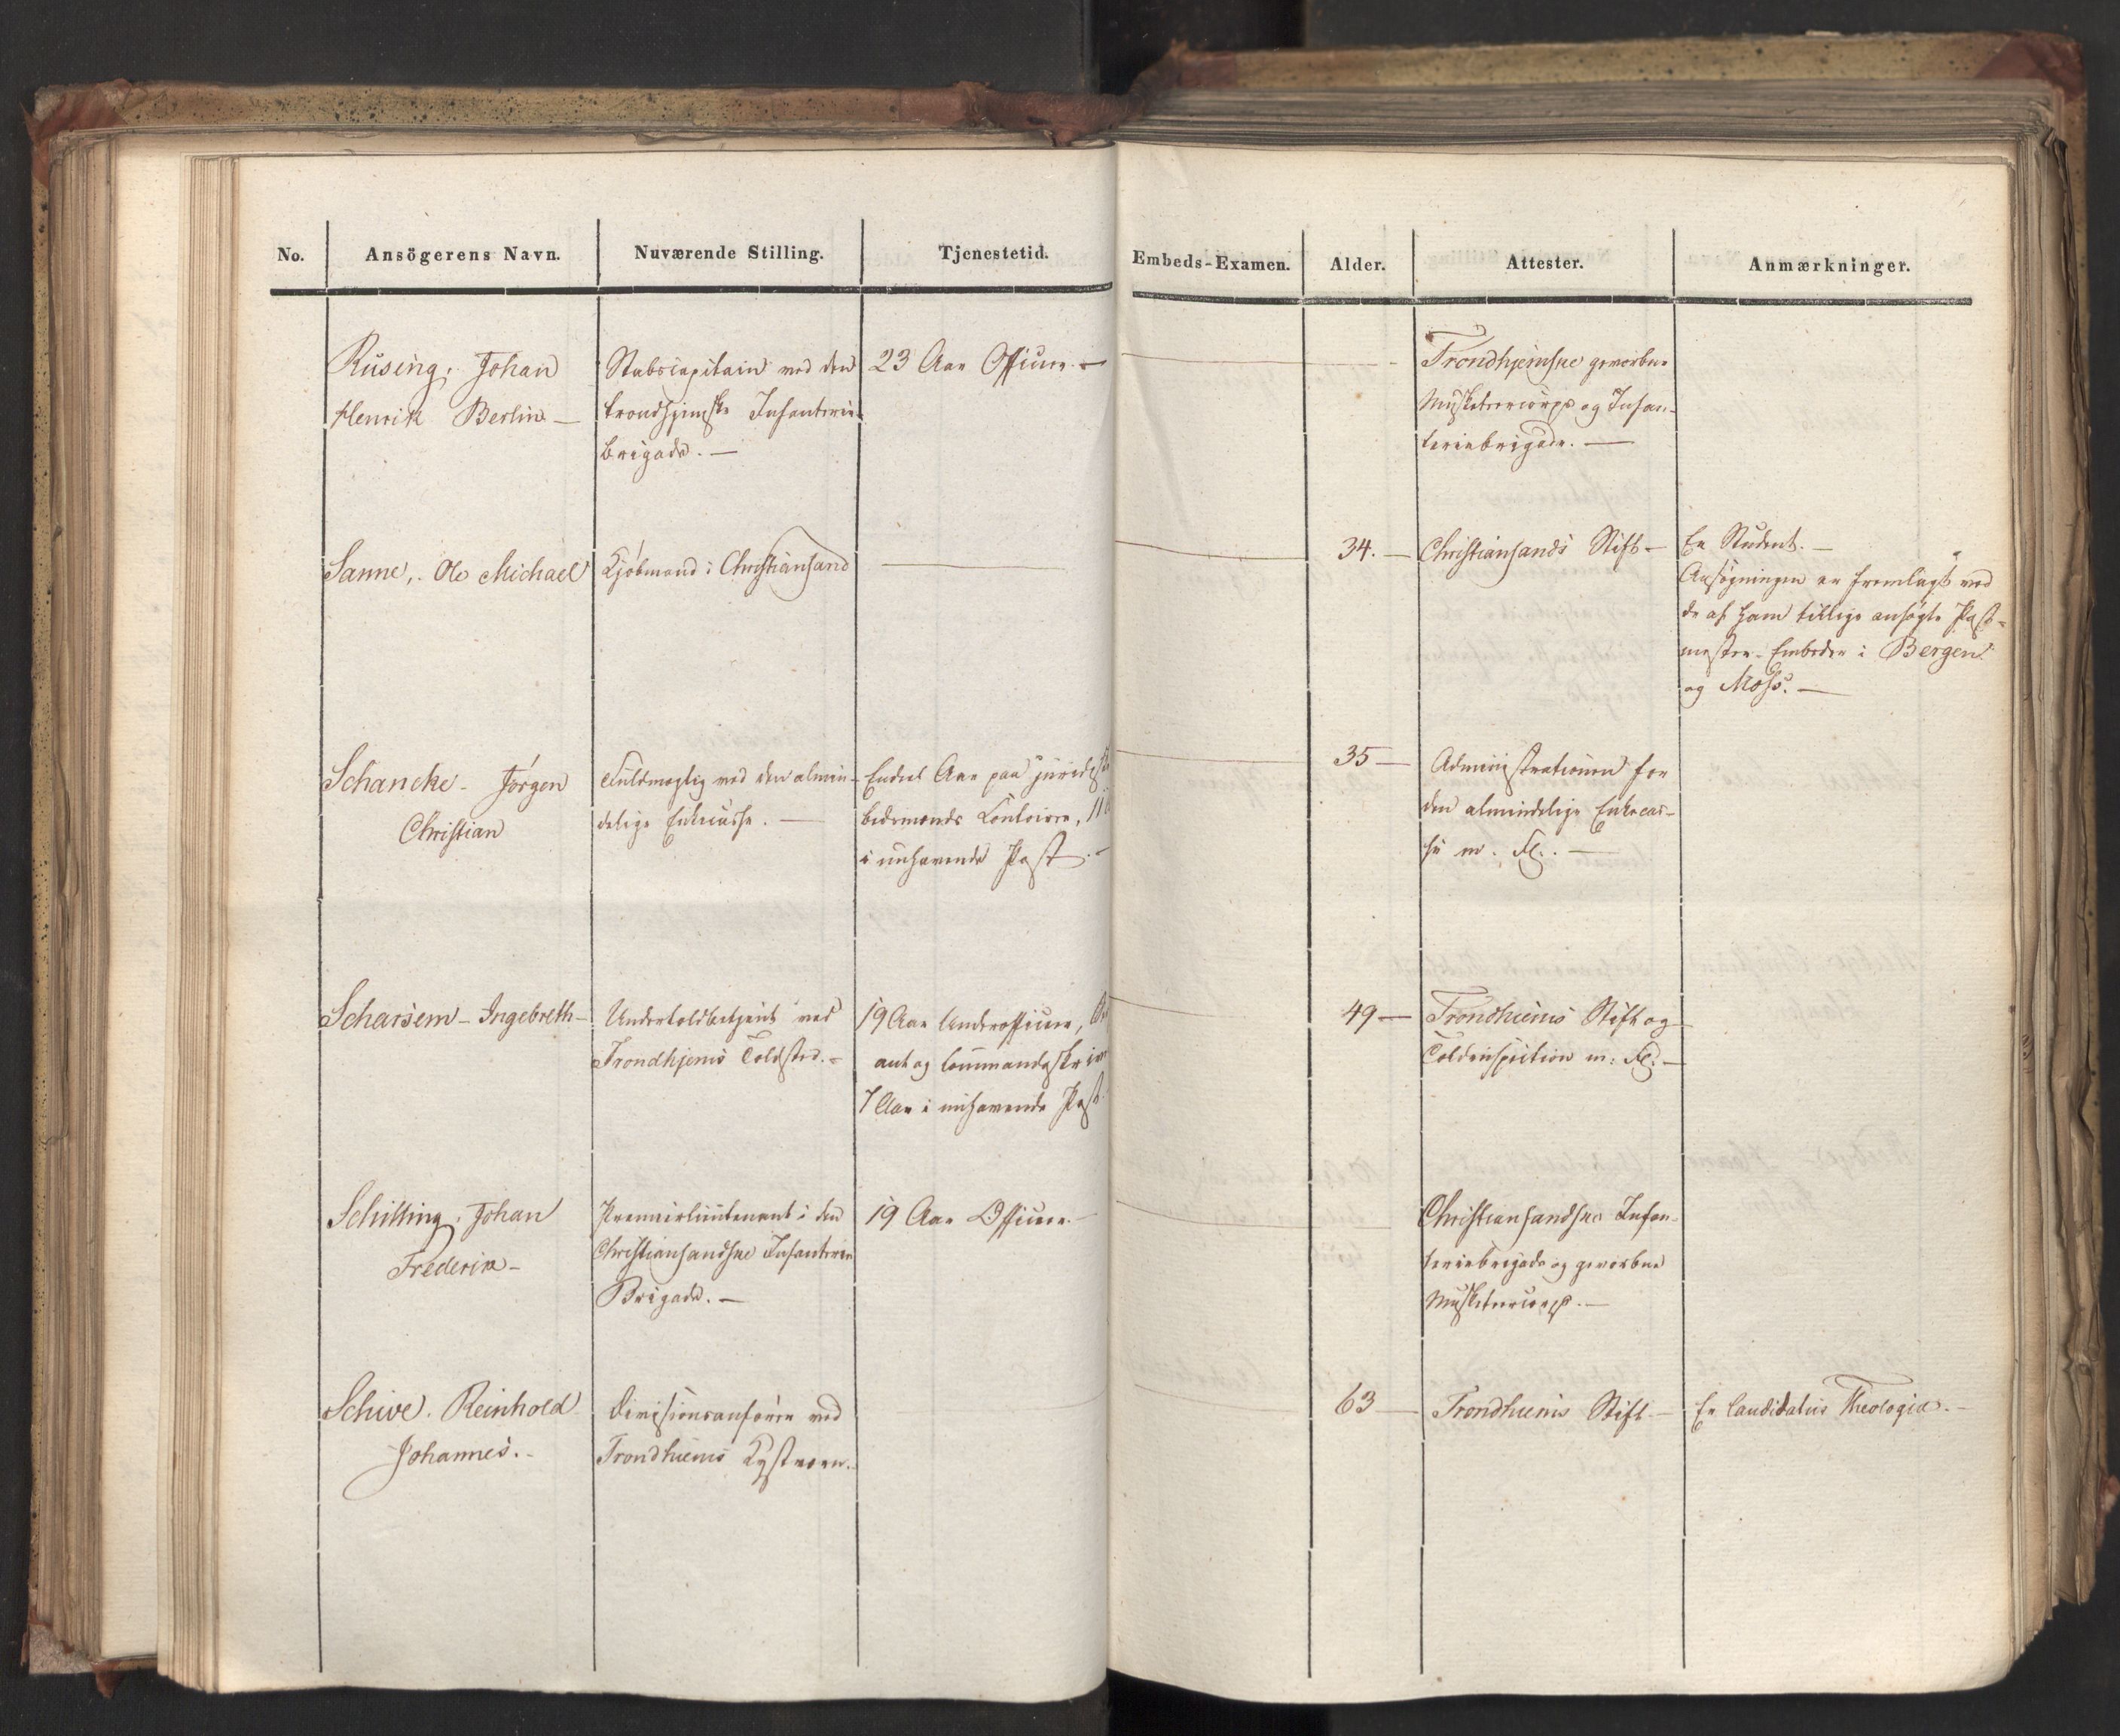 No. Ansögerens Navn. Nuværende Stilling. Tjenestetid. Embeds-Examen. Alder. Attester. Anmærkninger.
Rüsing, Johan
Henrik Berlin —
Stabscapitain ved den
trondhjemske Infanterie-
brigade. —
23 Aar Officier. —
Trondhjemske gevorbne
Musketeercorps og Infan-
teriebrigade. —
Sanne, Ole Michael
Kjöbmand i Christiansand
34. —
Christiansands Stift —
Er Student. —
Ansögningen er fremlagt ved
de af ham tillige ansögte Post-
mester-Embeder i Bergen
og Moss. —
Schancke - Jörgen
Christian
Fuldmægtig ved den almin-
delige Enkecasse. —
Endeel Aar paa juridiske
bedsmænds Contoirer, 11
i nuhavende Post. —
35 —
Administrationen for
den almindelige Enkecas-
se m. Fl. —
Scharsem - Ingebreth -
Undertoldbetjent ved
Trondhjems Toldsted. -
19 Aar Underofficier,
ant og Commandoskriver
7 Aar i nuhavende Post.
49 —
Trondhiems Stift og
Toldinspection m: Fl. —
Schilling, Johan
Frederik -
Premierlieutenant i den
Christiansandske Infanterie
Brigade. —
19 Aar Officier. —
Christiansandske Infan-
teriebrigade og gevorbne
Musketeercorps. —
Schive. Reinhold
Johannes. -
Divisionsanförer ved
Trondhiems Kystværn. -
63 —
Trondhiems Stift. —
Er Candidatus Theologiæ. —